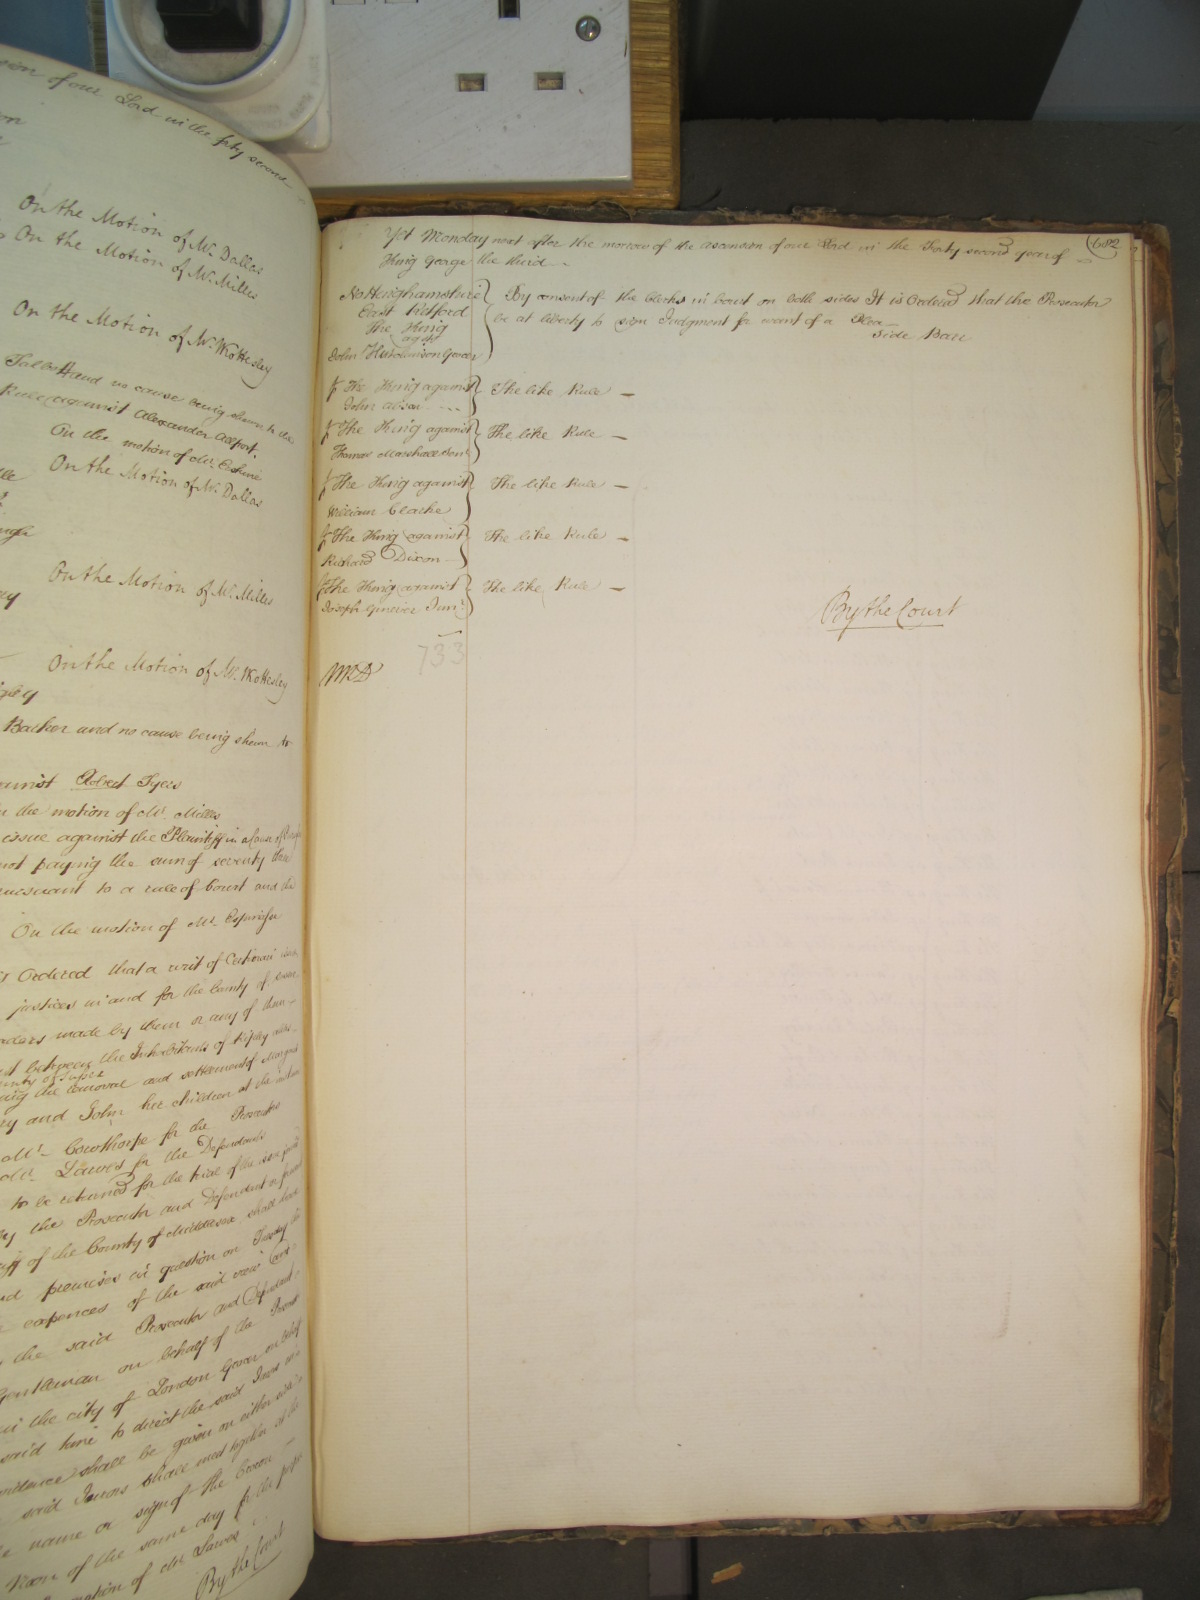 sion of our Lord in the forty second
On the Motion of Mr. Dallas
On the Motion of Mr. Milles
On the Motion of Mr. Wottesley
Talbott and no cause being shewn to the
Rule against Alexander Allport.
On the motion of Mr. Erskine
On the Motion of Mr. Dallas
On the Motion of Mr. Milles
On the Motion of Mr. Wottesley
Barker and no cause being shewn to
against Robert Tyers
the motion of Mr. Milles
issue against the Plaintiff in a
not paying the sum of seventy three
pursuant to a rule of Court and the
On the motion of Mr. Espinasse
is Ordered that a writ of Certiorari
justices in and for the County of
orders made by them or any of them
between the Inhabitants of Ripley
county of Sussex
the removal and settlement of Margaret
and John her children at the
Mr. Cowthorpe for the Prosecutor
Mr. Lawes for the Defendants
to be returned for the trial of the
by the Prosecutor and Defendant
of the County of Middlesex shall have
premises in question on Tuesday the
expences of the said view
the said Prosecutor and Defendant
Gentleman on behalf of the
in the city of London Gover on behalf
said time to direct the said Jurors
evidence shall be given on either side
said Jurors shall meet together at the
name or sign of the Crown
Noon of the same day for the
motion of Mr. Lawes
By the Court
Yet Monday next after the morrow of the ascension of our Lord in the Forty second year of 682
King George the third
Nottinghamshire By consent of the Clerks in Court on both sides It is Ordered that the Prosecutor
East Retford be at liberty to sign Judgment for want of a Plea
The King Side Barr
agst
John Hutchinson Grocer
The King against The like Rule
John
The King against The like Rule
Thomas Marshall
The King against The like Rule
William Clarke
The King against The like Rule
Richard Dixon
The King against The like Rule
Joseph Junr.
By the Court
733